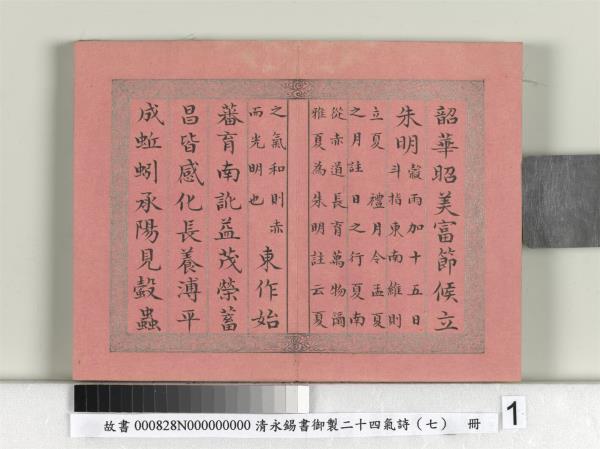 韶華昭美富節候立
朱明穀雨加十五日
斗指東南維則
立夏 禮月令孟夏
之月註 日之行夏南
從赤道長育萬物爾
雅夏為朱明註云夏
之氣和則赤
而光明也
東作始
蕃育南訛益茂榮蓄
昌皆感化長養溥平
成蚯蚓承陽見穀蟲
故書 000828N000000000 清永錫書御製二十四氣詩（七） 冊
1